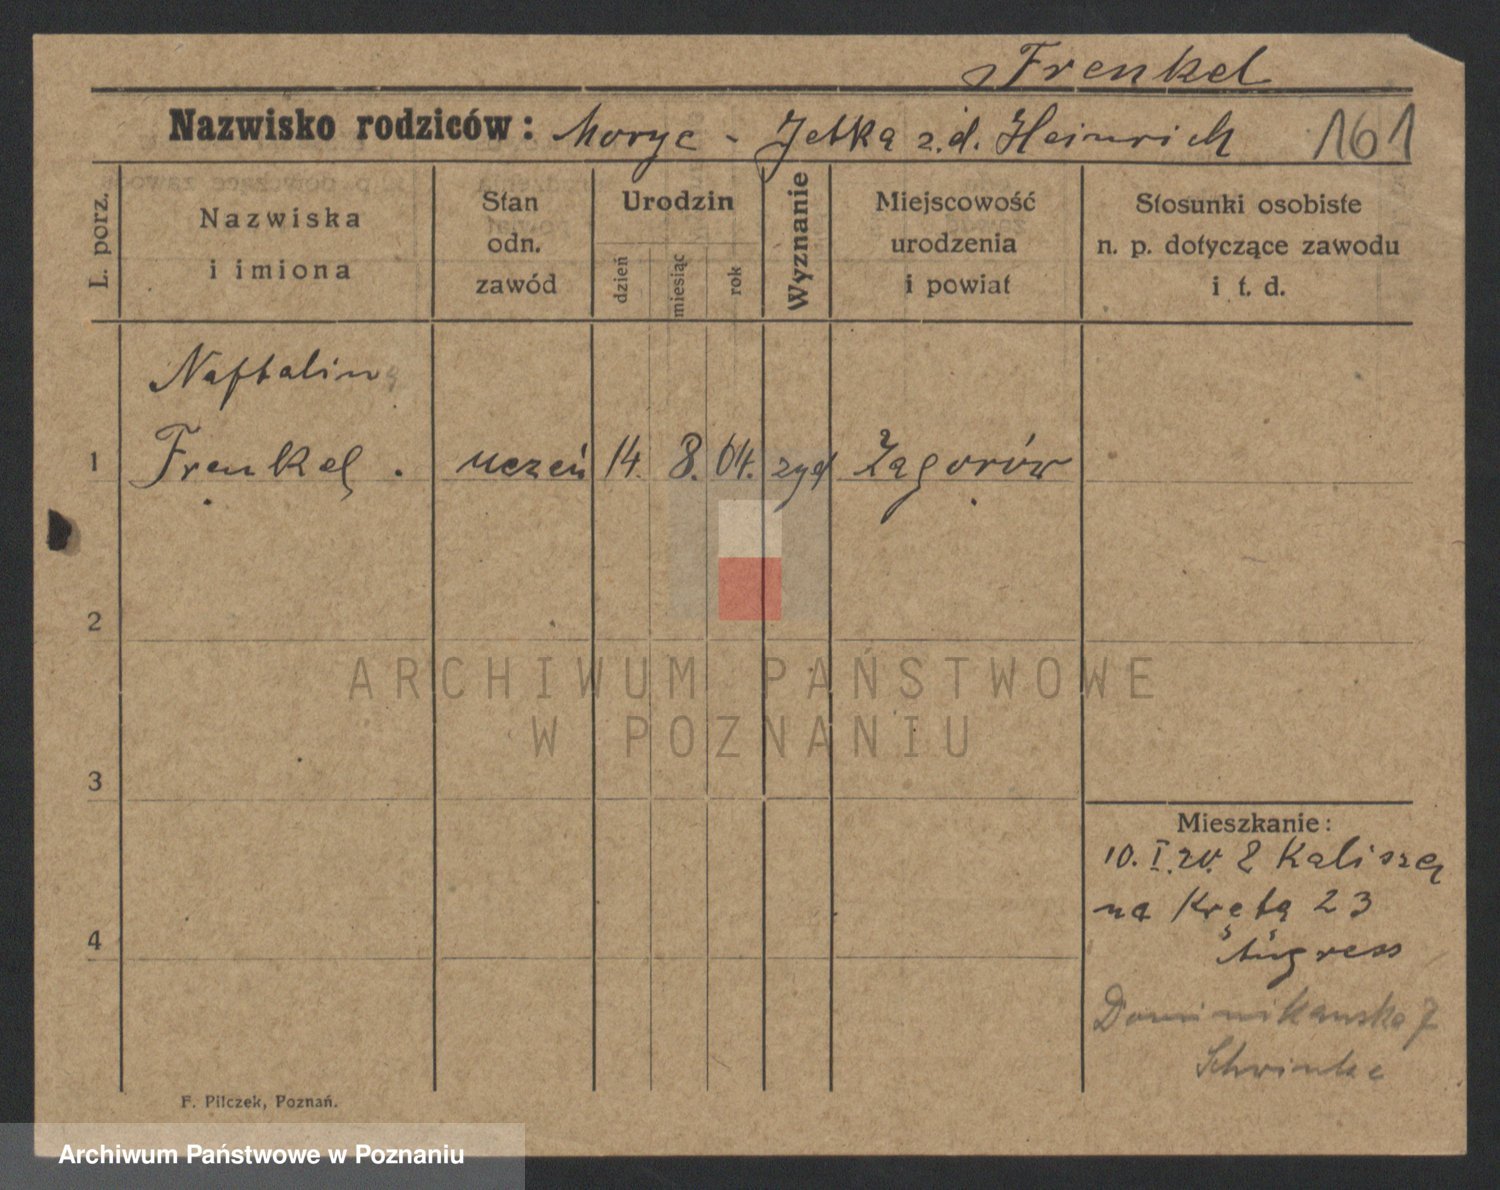 Frenkel
Nazwisko rodziców: Moryc - Jetka z.d. Heinrich 161
L. porz.
Nazwiska
i imiona
Stan
odn.
zawód
Urodzin
dzień
miesiąc
rok
Wyznanie
Miejscowość
urodzenia
i powiat
Stosunki osobiste
n. p. dotyczące zawodu
i t. d.
Naftalin
1 Frenkel. uczeń 14. 8. 04. żyd Zagorów
2
3
4
Mieszkanie:
10. I. 20. z Kalisza
na Kręta 23
Dominikańska 7
F. Pilczek, Poznań.
ARCHIWUM PAŃSTWOWE
W POZNANIU
Archiwum Państwowe w Poznaniu